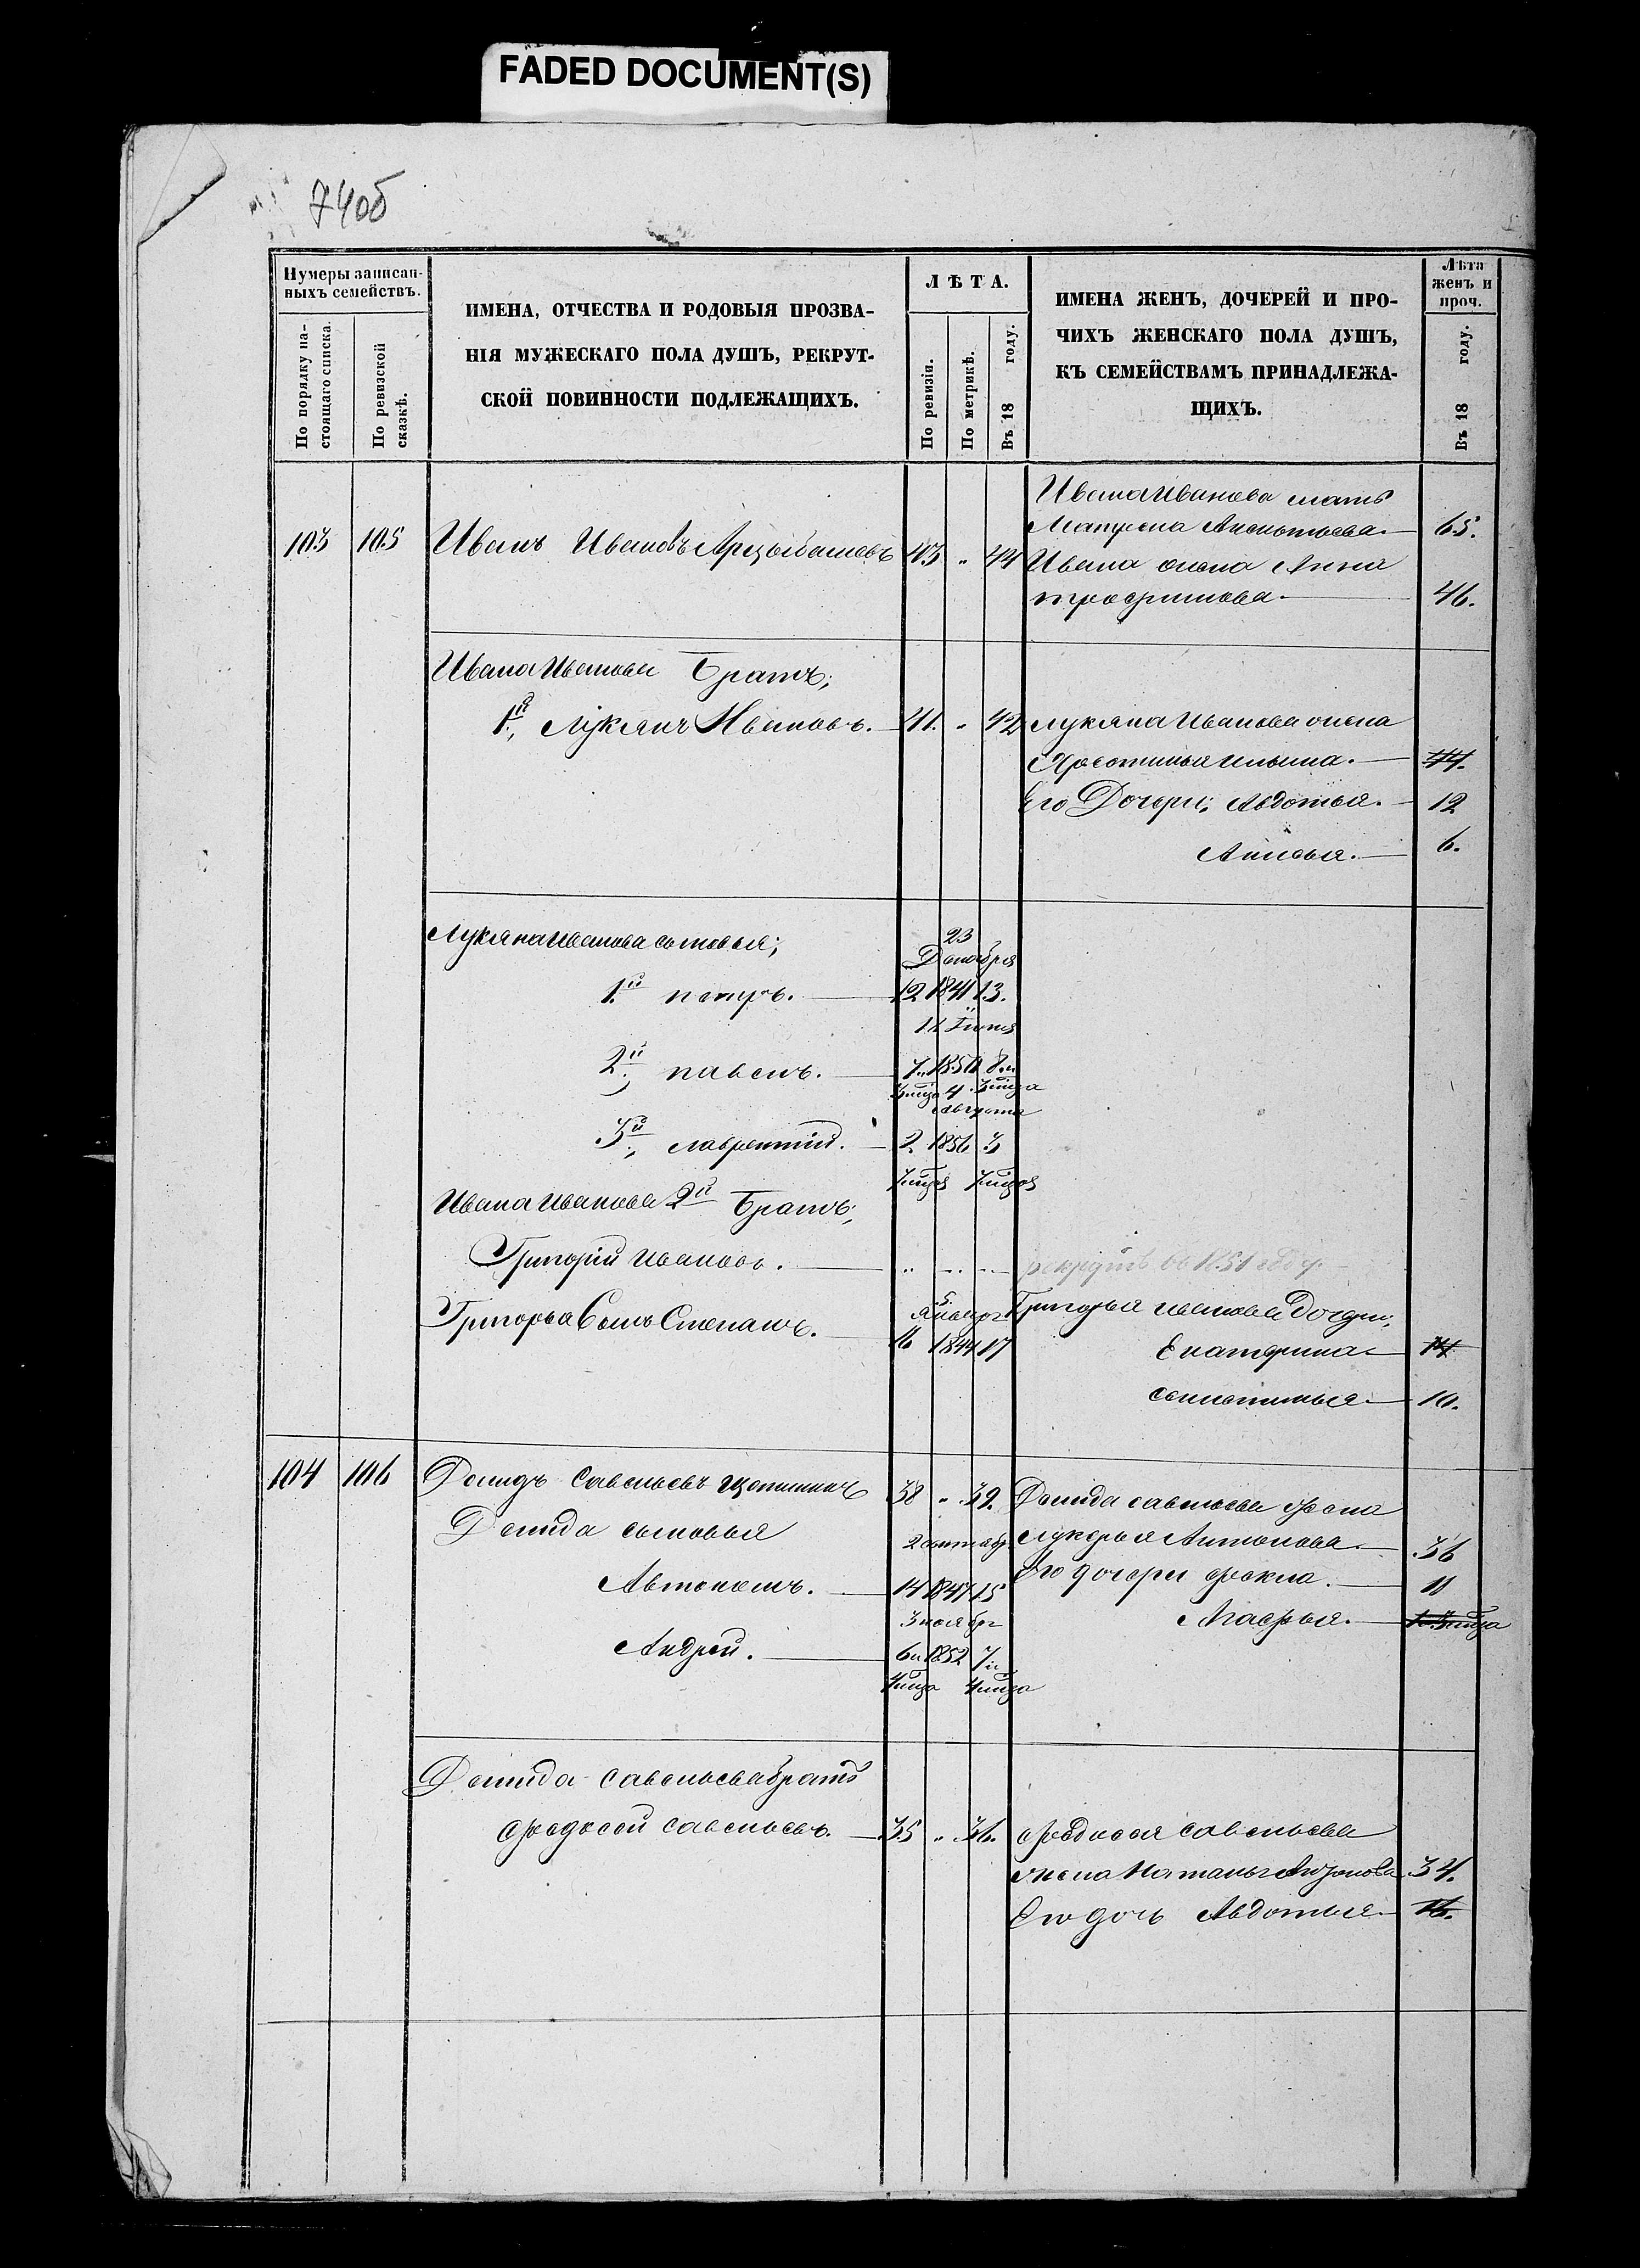 FADED DOCUMENT(S)
740б
Нумеры записан-
ныхъ семействъ.
По порядку на-
стоящаго списка.
По ревизской
сказкѣ.
ИМЕНА, ОТЧЕСТВА И РОДОВЫЯ ПРОЗВА-
НІЯ МУЖЕСКАГО ПОЛА ДУШЪ, РЕКРУТ-
СКОЙ ПОВИННОСТИ ПОДЛЕЖАЩИХЪ.
ЛѢТА.
По ревизіи.
По метрикѣ.
Въ 18 году.
ИМЕНА ЖЕНЪ, ДОЧЕРЕЙ И ПРО-
ЧИХЪ ЖЕНСКАГО ПОЛА ДУШЪ,
КЪ СЕМЕЙСТВАМЪ ПРИНАДЛЕЖА-
ЩИХЪ.
Лѣта
женъ и
проч.
Въ 18 году.
Ивана Иванова мать
103 105 Иванъ Ивановъ Арцыбашевъ 43 " 44
Матрена 65.
Ивана жена Анна
трофимова 46.
Ивана Иванова Братъ;
1й, Лукянъ Ивановъ. 41. " 42 Лукяна Иванова жена
ильина. 44.
Его Дочери; Авдотья. 12
Анисья. 6.
Лукяна Иванова сыновья;
23
Декабря
1й петръ. 12 1841 13.
11 Іюня
2й; павелъ. 7 .. 1850 8 ..
4
августа
3й; лаврентій. 2 1856 3
Ивана Иванова 2й Братъ;
Григорій Ивановъ. " " " рекрутъ въ 1851 году
5
Января
Григорья Сынъ Степанъ. 16 1844 17
Григорья иванова Дочери;
Екатерина 14
10.
104 106 Демидъ Савельевъ щепинъ 38 " 39. Демида савельева жена
Демида сыновья
2 сентябр
Лукерья Антонова 36
Автономъ. 14 1847 15
Его дочери фекла. 11
3 ноября
Марфья.
Андрей. 6 .. 1852 7 ..
Демида Савельева братъ
федосей Савельевъ. 35 " 36. федосея Савельева
жена Наталья 34.
Его дочь Авдотья 16.